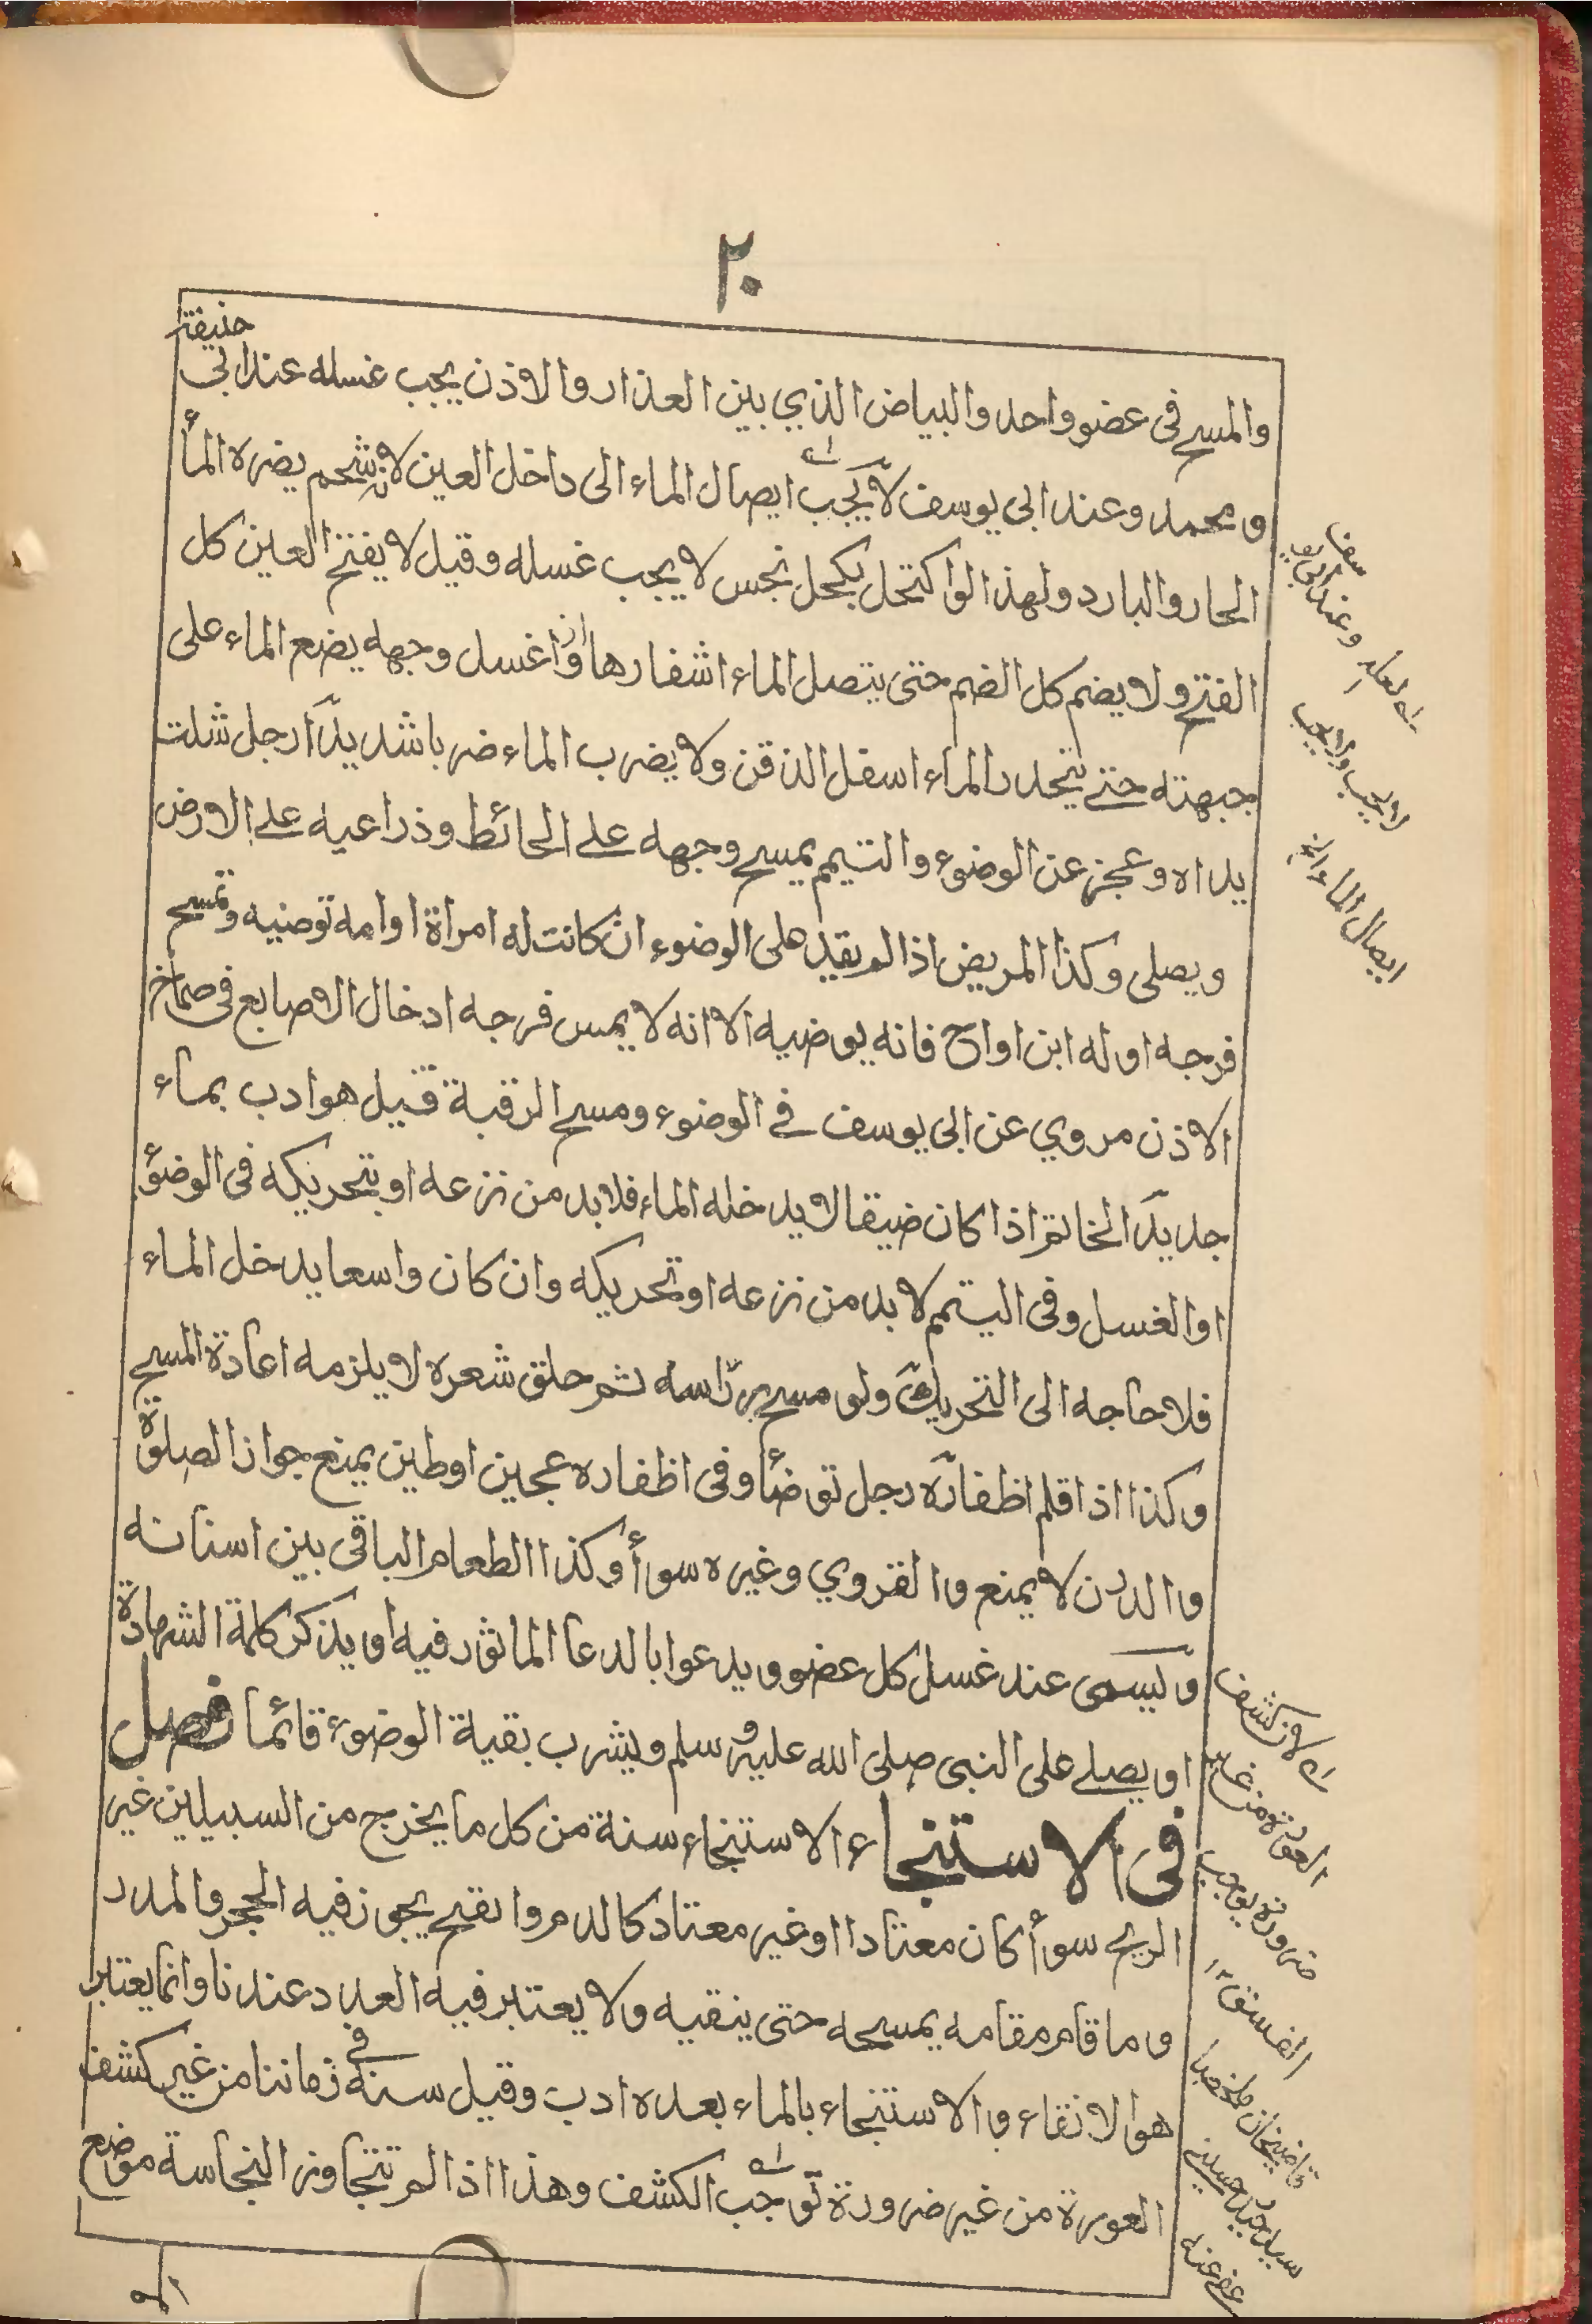 ٢٠
والمسح فى عضو واحد والبياض الذي بين العذار والاذن يجب غسله عند ابى حنيفة
ومحمد وعند ابى يوسف لا يجب ايصال الماء الى داخل العين لانه شحم يضره المأ
الحار والبارد ولهذا لو اكتحل بكحل نجس لا يجب غسله وقيل لا يفتح العين كل
الفتح ولا يضم كل الضم حتى يتصل الماء اشفارها واذا غسل وجهه يضع الماء على
جبهته حتے ينحدر الماء اسفل الذقن ولا يضرب الماء ضربا شديدا رجل شلت
يداه وعجز عن الوضوء والتيمم يمسح وجهه علے الحائط وذراعيه علے الارض
ويصلى وكذا المريض اذا لم يقدر على الوضوء ان كانت له امراة او امه توضيه وتمسح
فرجه او له ابن او اح فانه يوضيه الا انه لا يمس فرجه ادخال الاصابع فى صماخ
الاذن مروي عن ابى يوسف فے الوضوء ومسح الرقبة قيل هو ادب بماء
جديد الخاتم اذا كان ضيقا لا يدخله الماء فلا بد من نزعه او بتحريكه فى الوضؤ
او الغسل وفى اليتمم لا بد من نزعه او تحريكه وان كان واسعا يدخل الماء
فلا حاجه الى التحريك ولو مسح براسه ثم حلق شعره لا يلزمه اعادة المسح
وكذا اذا قلم اظفاره رجل توضأ وفى اظفاره عجين او طين يمنع جواز الصلوة
والدرن لا يمنع والقروي وغيره سوأ وكذا الطعام الباقى بين اسنانه
ويسمى عند غسل كل عضو ويدعوا بالدعا الماثور فيه او يذكر كلمة الشهادة
او يصلے على النبى صلى الله عليه وسلم ويشرب بقية الوضوء قائما فصل
فى الاستنجاء الاستنجاء سنة من كل ما يخرج من السبيلين غير
الريح سوأ كان معتادا او غير معتاد كالدم والقيح يجوز فيه الحجر والمدر
وما قام مقامه يمسحه حتى ينقيه ولا يعتبر فيه العدد عندنا وانما يعتبر
هو الانقاء والاستنجاء بالماء بعده ادب وقيل سنة فے زماننا من غير كشف
العورة من غير ضرورة توجب الكشف وهذا اذا لم تتجاوز النجاسة موضع
المو
لعله وعند ابى يوسف
لا يجب ولا يجب
ايصال الماء
لان كشف
العورة من غير
ضرورة يوجب
الفسق ١٢
قاضيخان ملخصا
عفى عنه